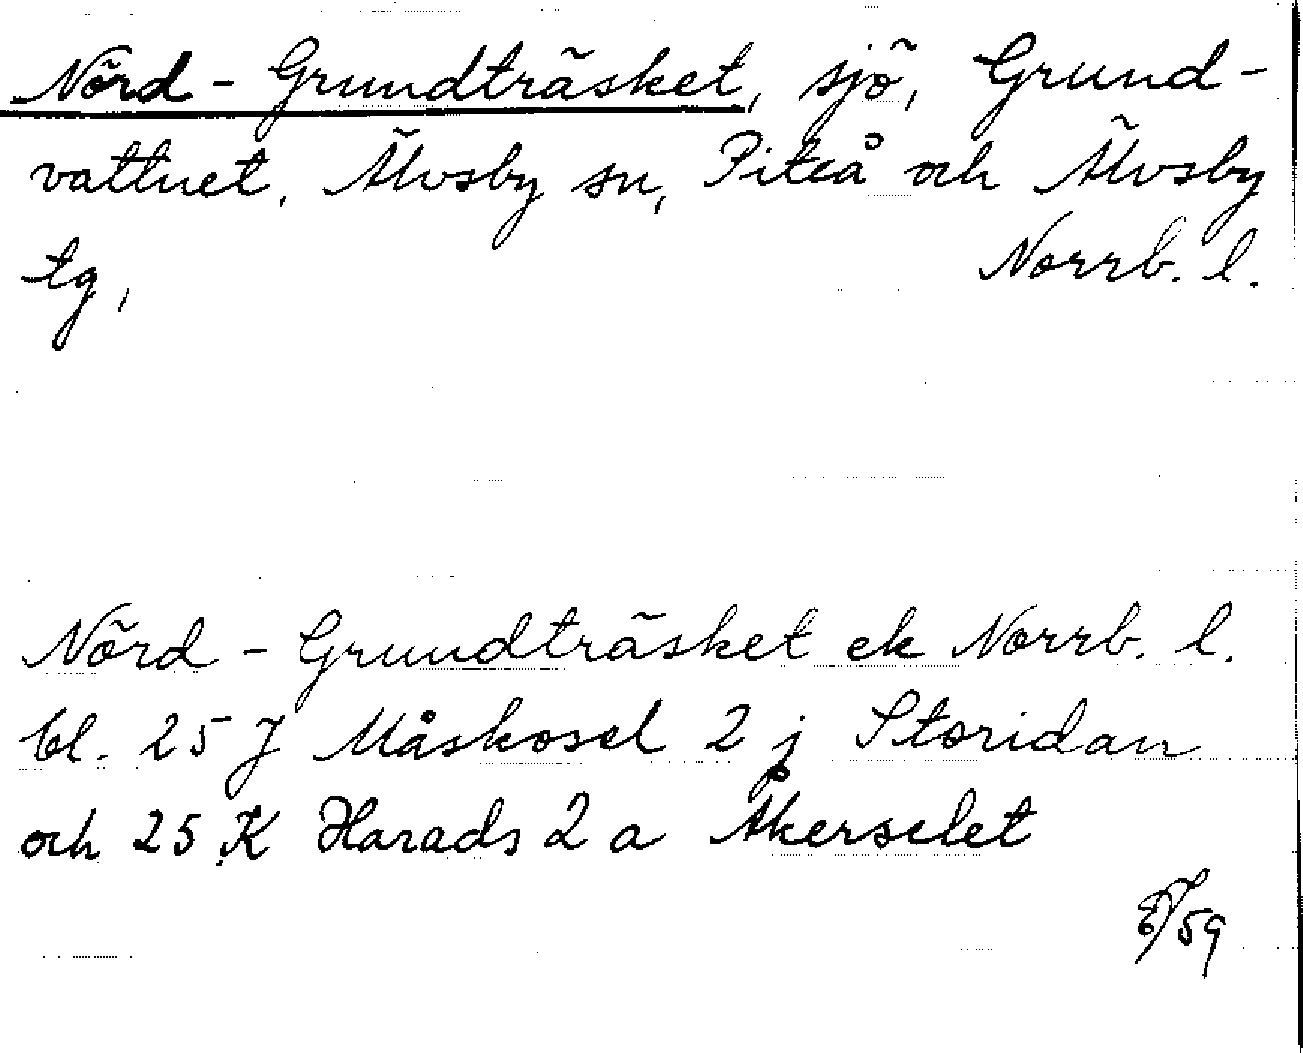 Nörd - Grundträsket, sjö, Grund-
vattnet, Älvsby sn, Piteå och Älvsby
tg,
Norrb. l.
Nörd - Grundträsket ek Norrb. l.
bl. 25 J Måskosel 2 j Storidan
och 25 K Harads 2 a Åkerselet
/59